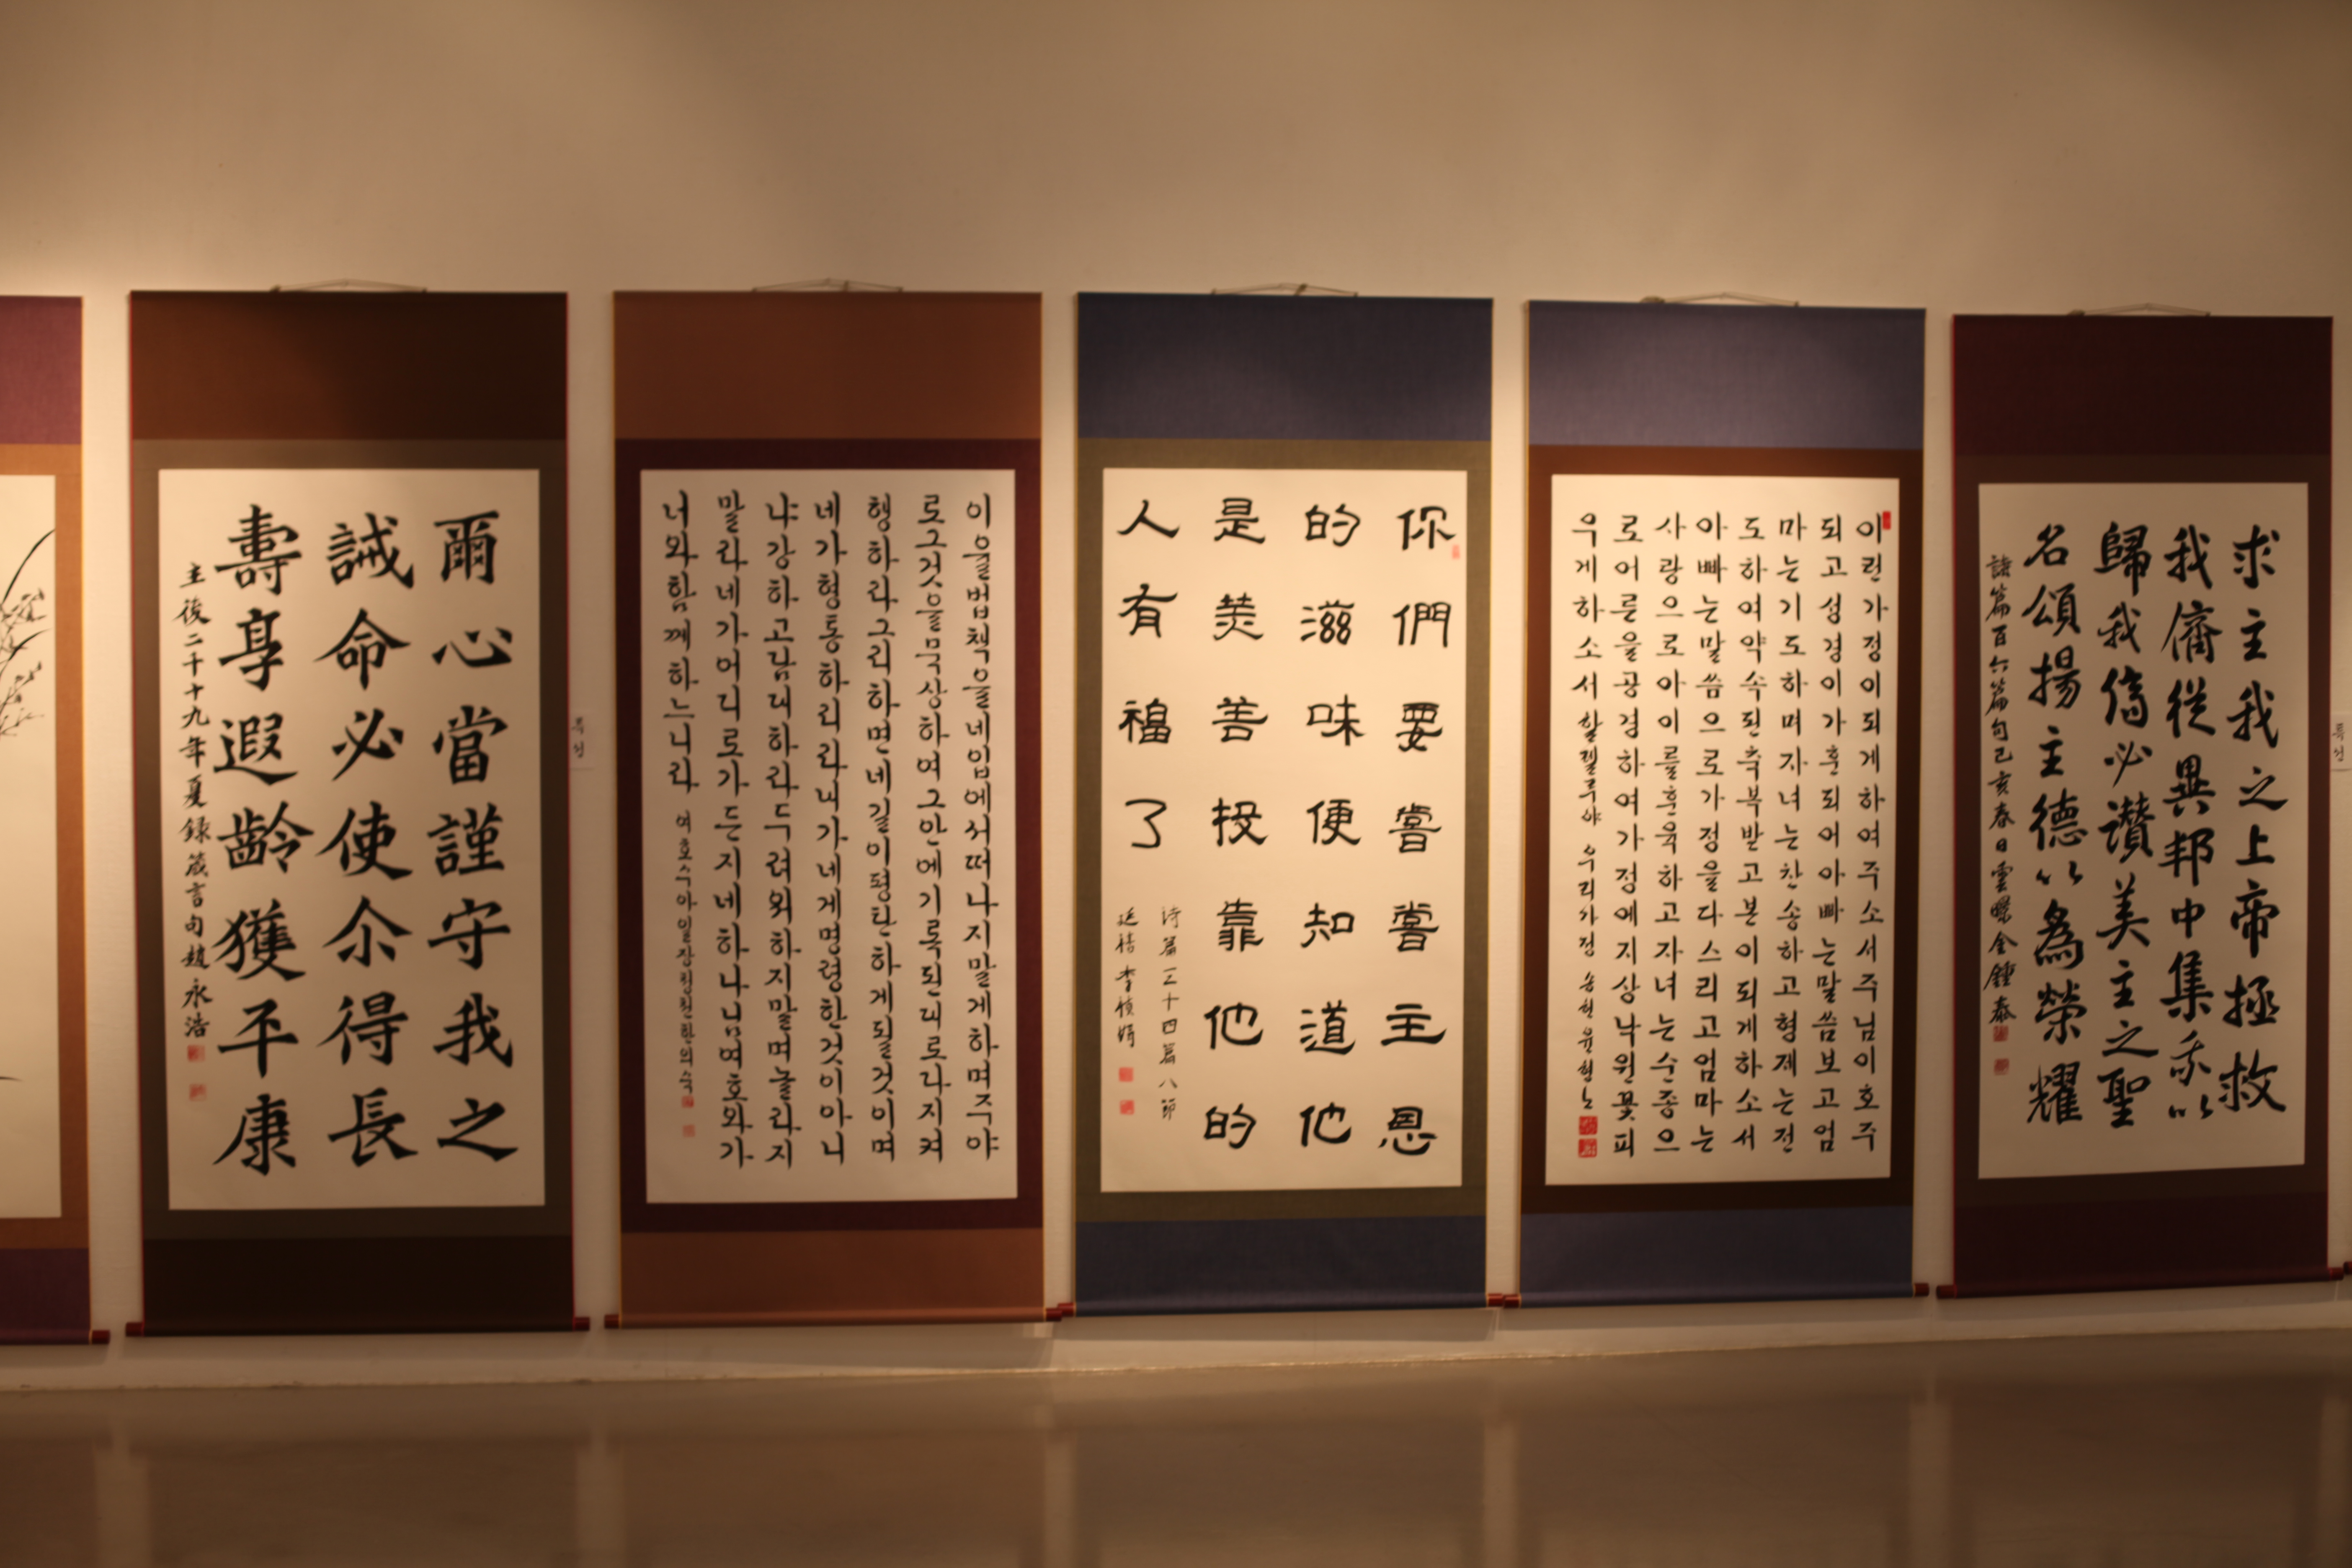 爾心當謹守我之
誡命必使尒得長
壽享遐齡獲平康
主後二千十九年夏録箴言句趙永浩
이율법책을네입에서떠나지말게하며주야
로그것을묵상하여그안에기록된대로다지켜
행하라그리하면네길이평탄하게될것이며
네가형통하리라내가네게명령한것이아니
냐강하고담대하라두려워하지말며놀라지
말라네가어디로가든지네하나님여호와가
너와함께하느니라 여호수아일장
你們要嘗嘗主恩
的滋味便知道他
是美善投靠他的
人有福了
诗篇三十四篇八節
이런가정이되게하여주소서주님이호주
되고성경이가훈되어아빠는말씀보고엄
마는기도하며자녀는찬송하고형제는전
도하여약속된축복받고본이되게하소서
아빠는말씀으로가정을다스리고엄마는
사랑으로아이를훈육하고자녀는순종으
로어른을공경하여가정에지상낙원꽃피
우게하소서할렐루야 우리가정 송헌윤형노
求主我之上帝拯救
我儕從異邦中集以
歸我儕必讚美主之聖
名頌揚主德以為榮耀
詩篇百六篇句己亥春日雲金鍾泰